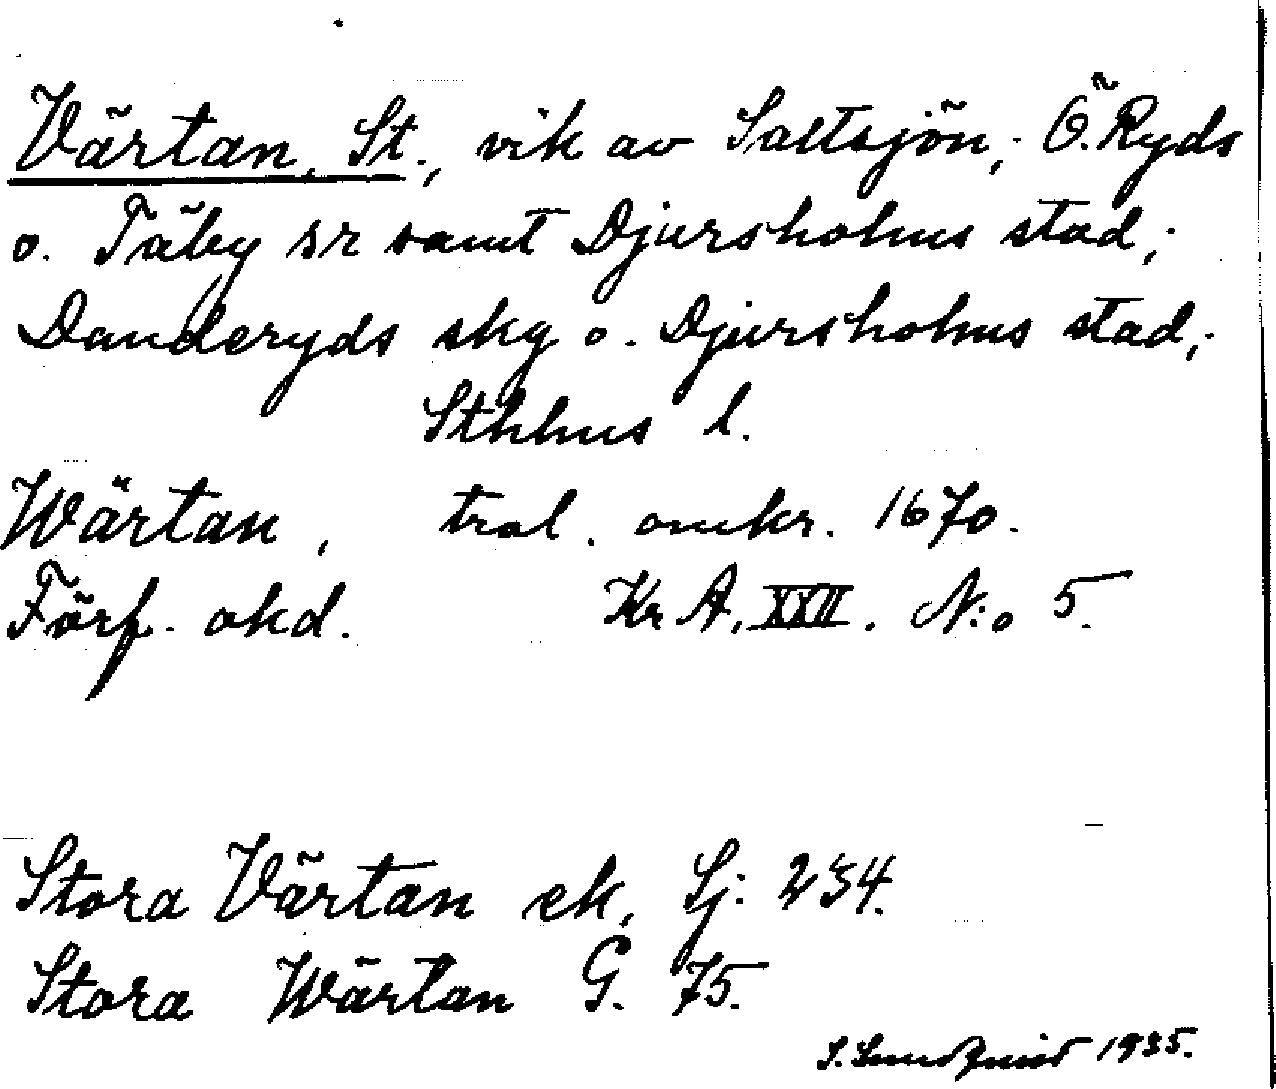 Värtan, St., vik av Saltsjön; Ö. Ryds
o. Täby sr samt Djursholms stad;
Danderyds skg o. Djursholms stad;
Sthlms l.
Wärtan, tral. omkr. 1670.
Förf. okd. Kr A. XXII. N:o 5.
Stora Värtan ek, Sj. 234.
Stora Wärtan G. 75.
S. Sundqvist 1935.